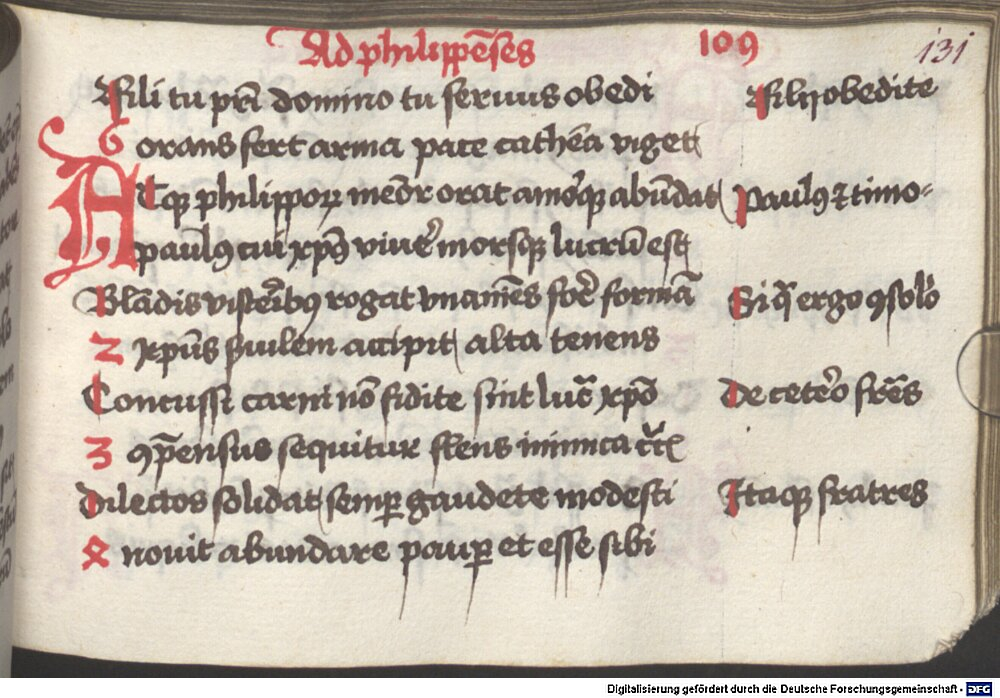 Ad philippēses 109 131
Fili tu pr̄i domino tu seruus obedi Filij obedite
6 orans fert arma pace cathēa viget
Atqꝫ philippoꝝ mēdr orat amorqꝫ abūdat Paulꝰ & timo-
paulꝰ cui xp̄s viuer̄ morsqꝫ lucrū est
Blādis visceribꝰ rogat vnāmēs for̄e formā Si qͣ ergo ꝯsolo
2 xp̄us suilem accipit alta tenens
Concussi carni nō fidite sint lucͣ xp̄o De cetero fr̄es
3 ꝯp̄ensus sequitur flens inimica cͣcͥ
Dilectos solidat semꝑ gaudete modesti Itaqꝫ fratres
4 nouit abundare pauꝑ et esse sibi
Digitalisierung gefördert durch die Deutsche Forschungsgemeinschaft - DFG